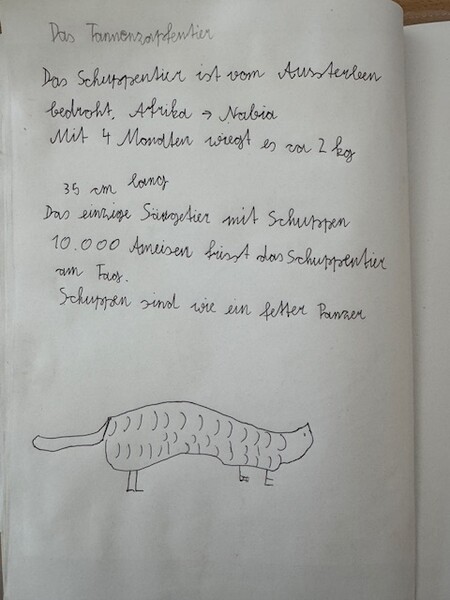 Das Tannenzapfentier
Das Schuppentier ist vom Aussterben
bedroht. Afrika → Nabia
Mit 4 Mondten wiegt es ca 2 kg
35 cm lang
Das einzige Säugetier mit Schuppen
10.000 Ameisen frisst das Schuppentier
am Tag.
Schuppen sind wie ein fetter Panzer